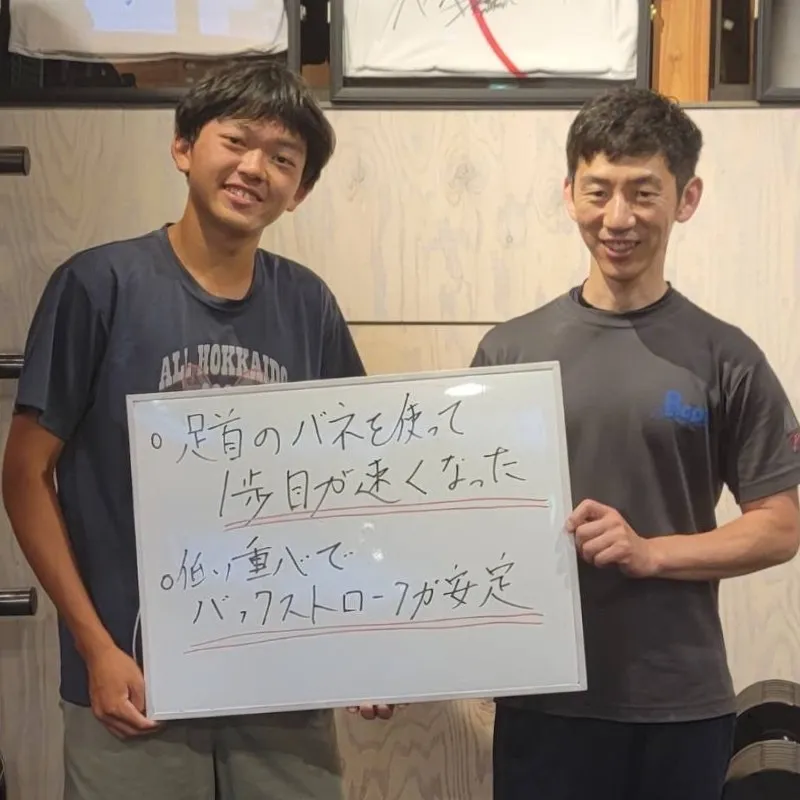 ALL HOKKAIDO
○ 足首のバネを使って
1歩目が速くなった
○ 低い重心で
バックストロークが安定